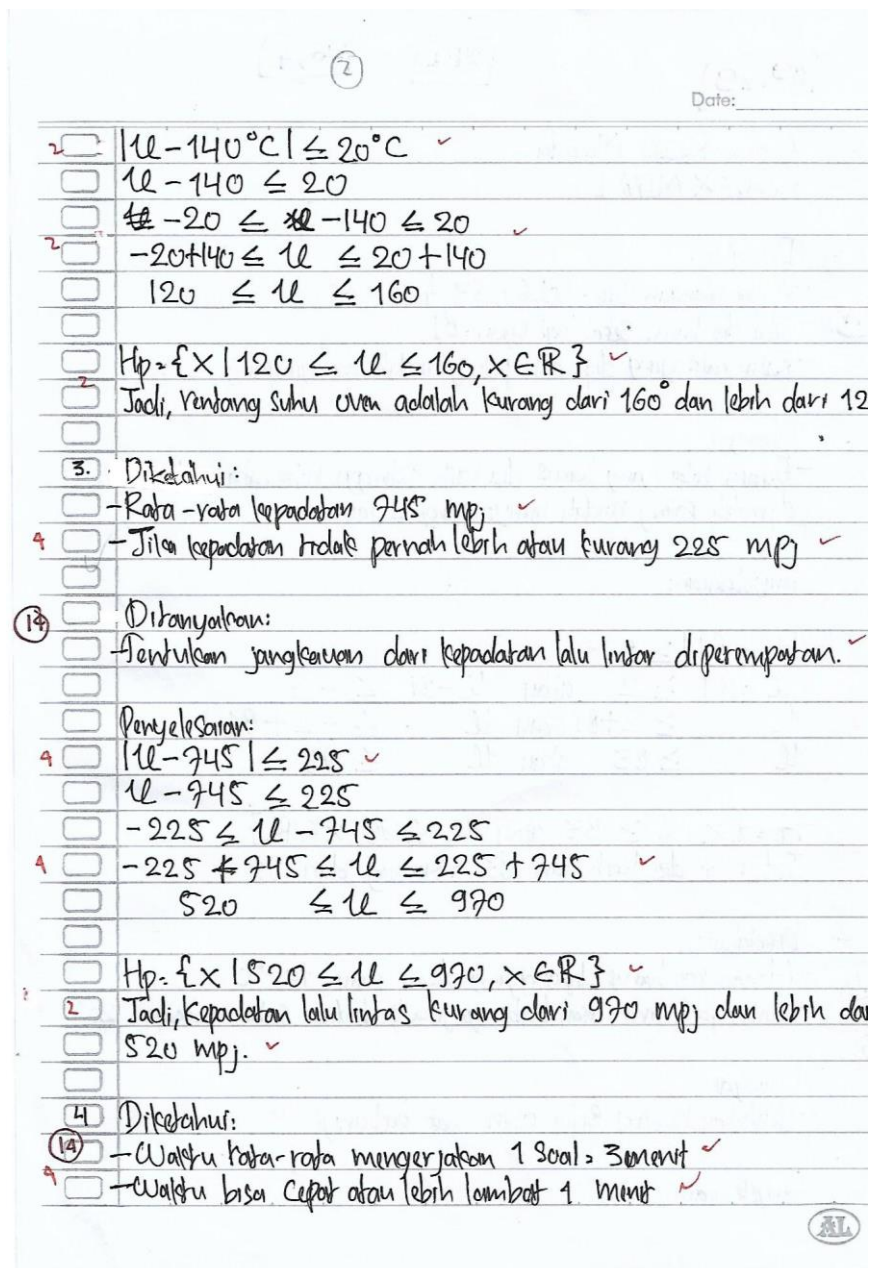 2
Date:
2 |u-140°C| ≤ 20°C ✓
u-140 ≤ 20
-20 ≤ u-140 ≤ 20
2 -20+140 ≤ u ≤ 20+140 ✓
120 ≤ u ≤ 160
Hp = {x | 120 ≤ u ≤ 160, x ∈ ℝ} ✓
2 Jadi, rentang suhu oven adalah kurang dari 160° dan lebih dari 12
3. Diketahui:
- Rata-rata kepadatan 745 mpj ✓
4 - Jika kepadatan tidak pernah lebih atau kurang 225 mpj ✓
14 Ditanyakan:
- Tentukan jangkauan dari kepadatan lalu lintas diperempatan. ✓
Penyelesaian:
4 |u-745| ≤ 225 ✓
u-745 ≤ 225
-225 ≤ u-745 ≤ 225
4 -225 + 745 ≤ u ≤ 225 + 745 ✓
520 ≤ u ≤ 970
Hp = {x | 520 ≤ u ≤ 970, x ∈ ℝ} ✓
2 Jadi, Kepadatan lalu lintas kurang dari 970 mpj dan lebih da
520 mpj. ✓
4 Diketahui:
14 - Waktu rata-rata mengerjakan 1 soal = 3 menit ✓
4 - Waktu bisa cepat atau lebih lambat 1 menit ✓
AL